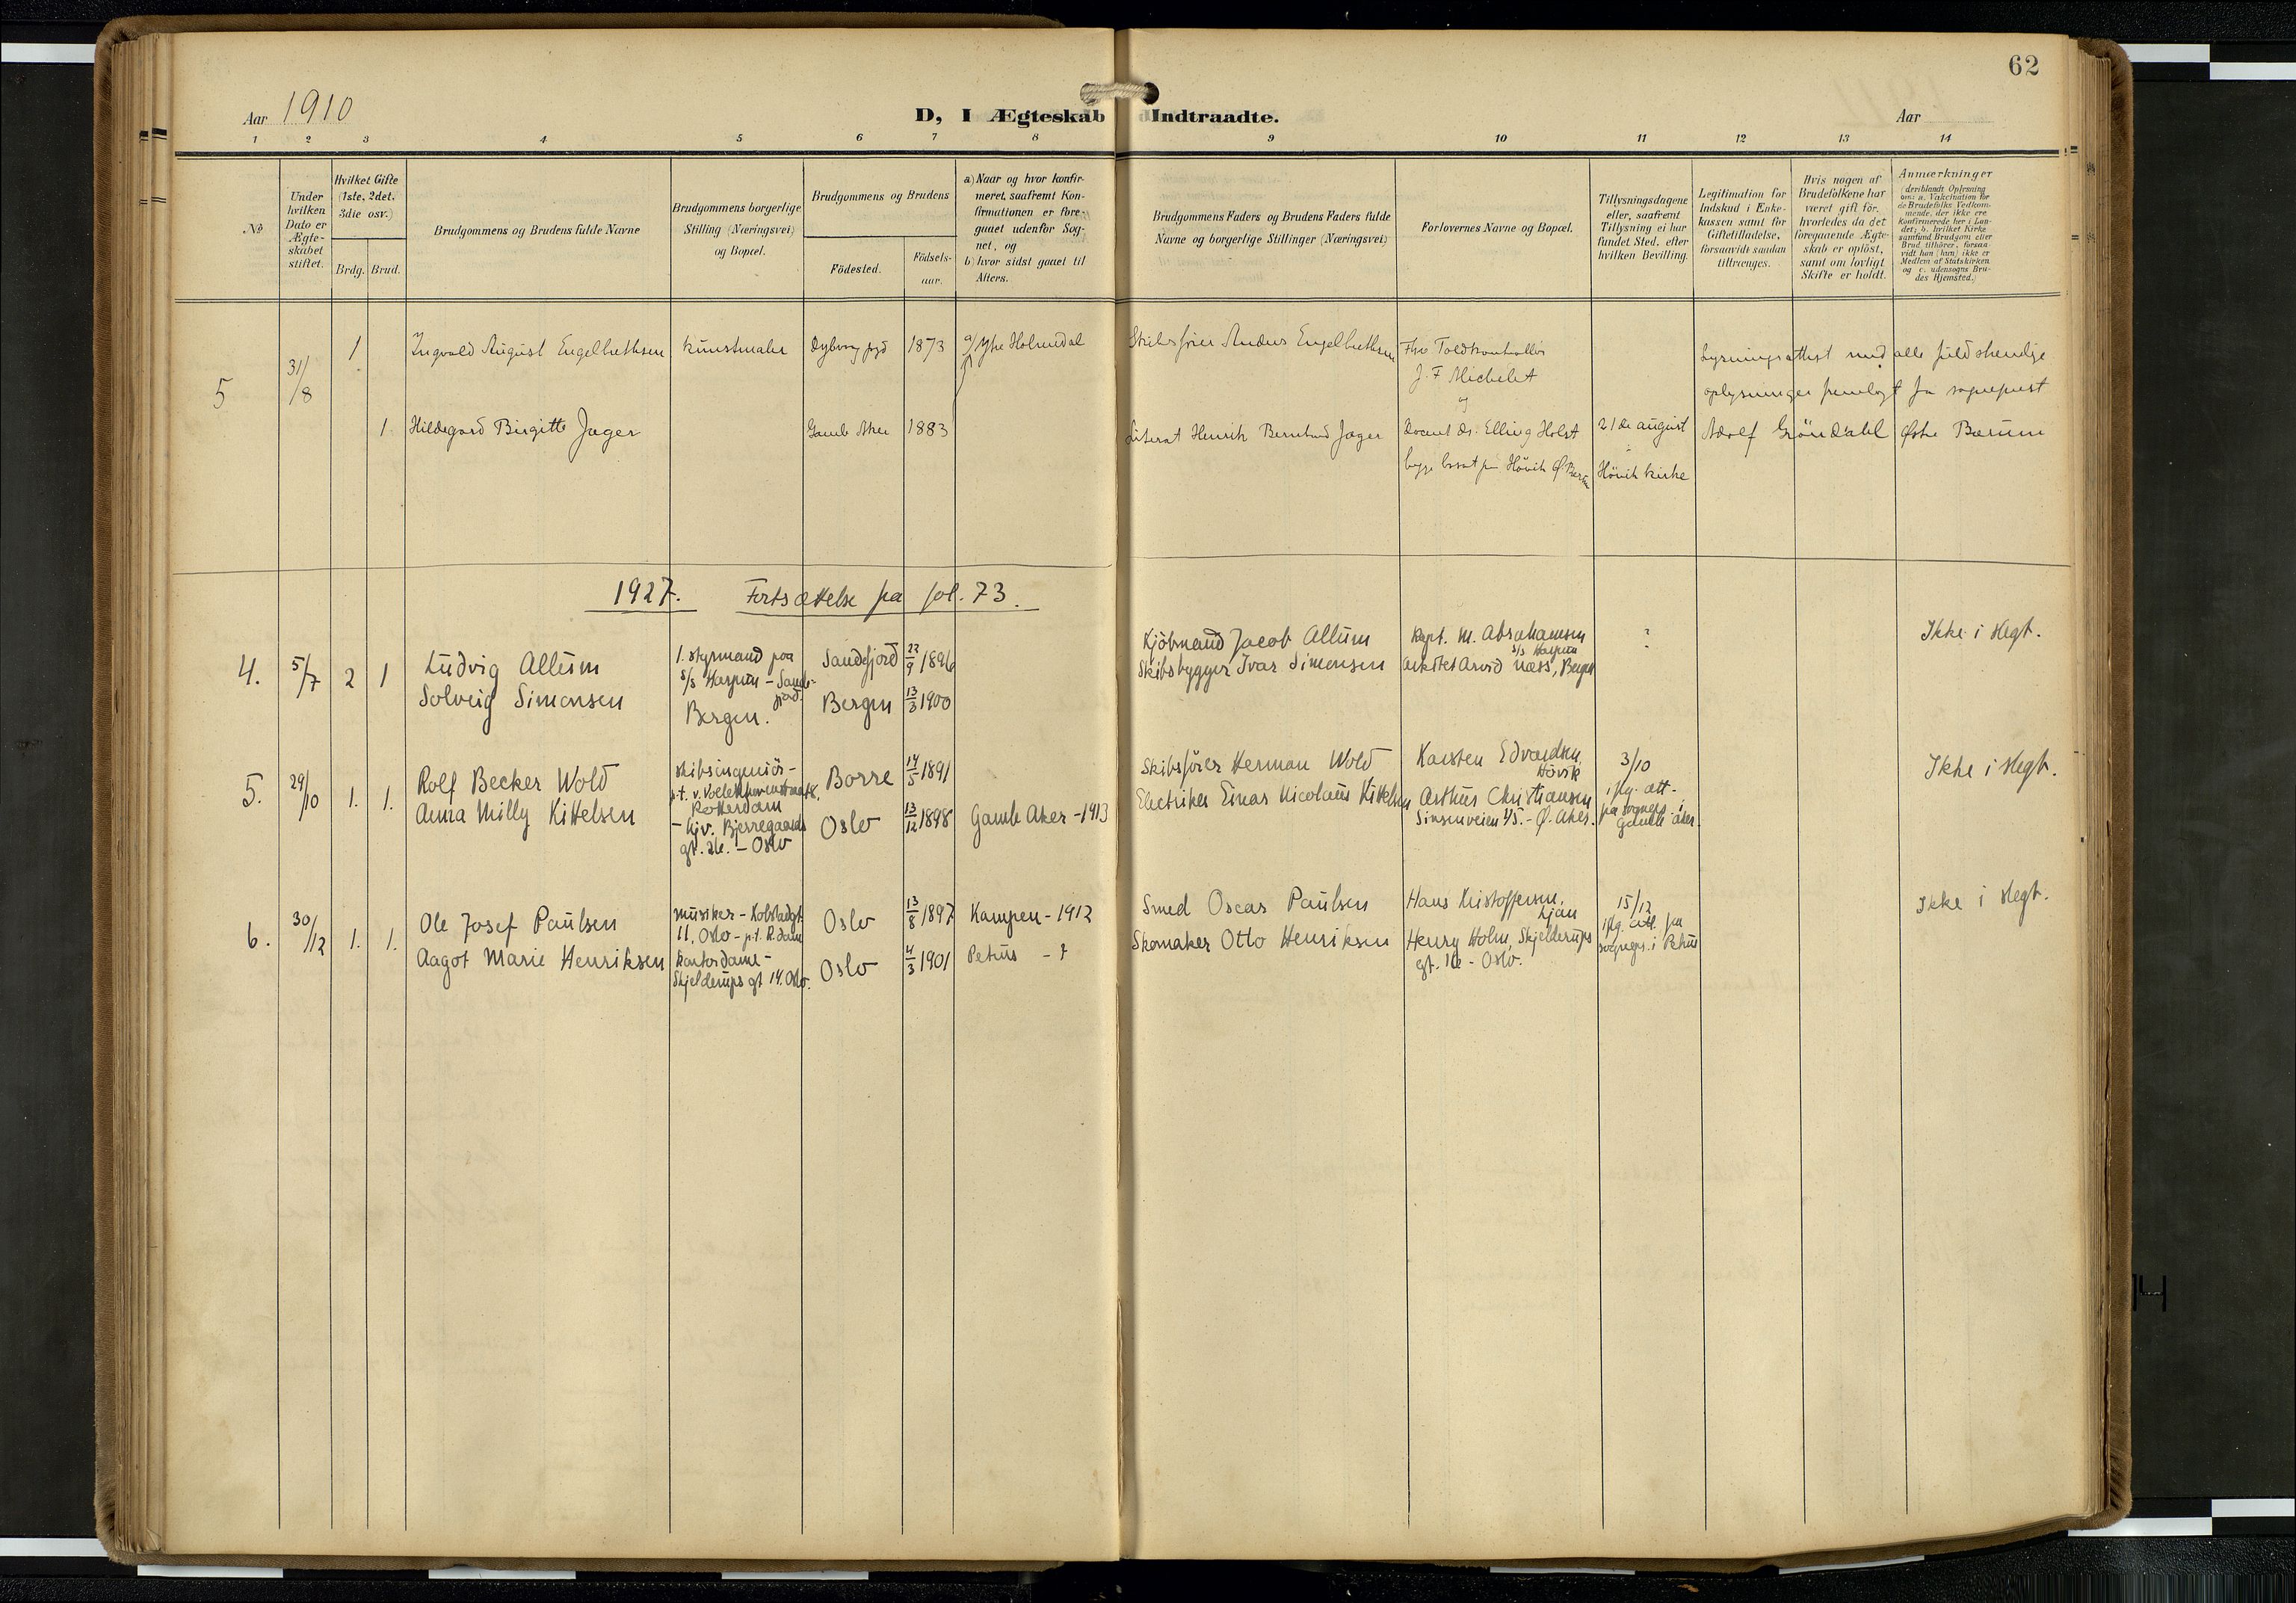 62
Aar 1910
D, I Ægteskab Indtraadte.
Aar
1 2 3 4 5 6 7 8 9 10 11 12 13 14
No
Under hvilken Dato er Ægte-skabet stiftet.
Hvilket Gifte (1ste, 2det, 3die osv.)
Brdg. Brud.
Brudgommens og Brudens fulde Navne
Brudgommens borgerlige Stilling (Næringsvei) og Bopæl.
Brudgommens og Brudens
Födested.
Födsels-aar.
a) Naar og hvor konfir-meret, saafremt Kon-firmationen er fore-gaaet udenfor Sog-net, og
b) hvor sidst gaaet til Alters.
Brudgommens Faders og Brudens Faders fulde Navne og borgerlige Stillinger (Næringsvei)
Forlovernes Navne og Bopæl.
Tillysningsdagene eller, saafremt Tillysning ei har fundet Sted, efter hvilken Bevilling.
Legitimation for Indskud i Enke-kassen samt for Giftetilladelse, forsaavidt saadan tiltrænges.
Hvis nogen af Brudefolkene har været gift för, hvorledes da det foregaaende Ægte-skab er oplöst, samt om lovligt Skifte er holdt.
Anmærkninger
(deriblandt Oplysning om: a. Vakcination for de Brudefolks Vedkom-mende, der ikke ere Konfirmerede her i Lan-det; b. hvilket Kirke samfund Brudgom eller Brud tilhörer, forsaa-vidt han (hun) ikke er Medlem af Statskirken og c. udensogns Bru-des Hjemsted.)
5
31/8
1
Ingvald August Engelbrethsen
kunstmaler
1873
a/ Ytre Holmedal
Skibsfører Anders Engelbrethsen
Hr Toldkontrollør
J. F Michelet
og
Lysningsattest med alle fuldstendige
oplysninger fremlagt fra sogneprest
1
Hildegard Birgitte Jæger
Gamle Aker
1883
Literat Henrik Bernhard Jæger
Docent Dr. Elling Holst
begge bosat på Hövik Ø Bærum
21de august
Hövik kirke
Adolf Gröndahl Østre Bærum
1927. Fortsættelse fra fol. 73.
4.
5/7
2 1
Ludvig Allum
Solveig Simonsen
1. styrmand paa
s/s Harpun - Sande-
fjord.
Bergen.
Sandefjord
Bergen
22/9 1896
13/3 1900
Kjöbmand Jacob Allum
Skibsbygger Ivar Simonsen
Kapt. M. Abrahamsen
s/s Harpun
Arkitet Arvid Næss, Bergen
?
Ikke i slegt.
5.
29/10
1. 1.
Rolf Becker Wold
Anna Milly Kittelsen
skibsingeniör-
Rotterdam
- hjv. Bjerregaards
gt. 26. - Oslo
Borre
Oslo
14/5 1891
13/12 1898
Gamle Aker - 1913
Skibsförer Herman Wold
Electriker Einar Nicolaus Kittelsen
Karsten Edvardsen,
Hövik
Arthur Christiansen
Sinsenveien 45. - Ø. Aker.
3/10
iflg. att.
fra sogneps i
Gamle aker
Ikke i slegt.
6.
30/12
1. 1.
Ole Josef Paulsen
Aagot Marie Henriksen
musiker - Kolstadgt
11, Oslo - p.t. R.dam
kontordame -
Skjelderups gt 14. Oslo.
Oslo
Oslo
13/8 1897
4/3 1901
Kampen - 1912
Petrus - ?
Smed Oscar Paulsen
Skomaker Otto Henriksen
Hans Kristoffersen,
Ljan
Henry Holm, Skjelderups
gt. 16 - Oslo.
15/12
iflg. att. fra
sogneps. i Petrus
Ikke i slegt.